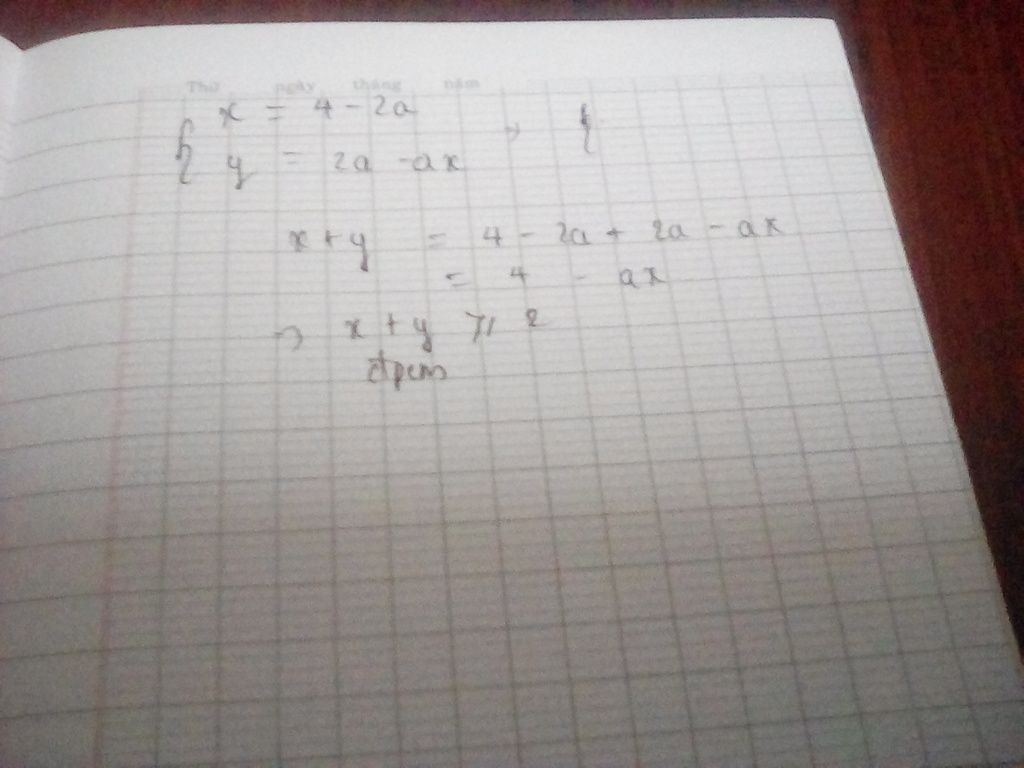 Thứ ngày tháng năm
{ x = 4 - 2a → {
y = 2a - ax
x + y = 4 - 2a + 2a - ax
= 4 - ax
→ x + y ≥ 2
đpcm